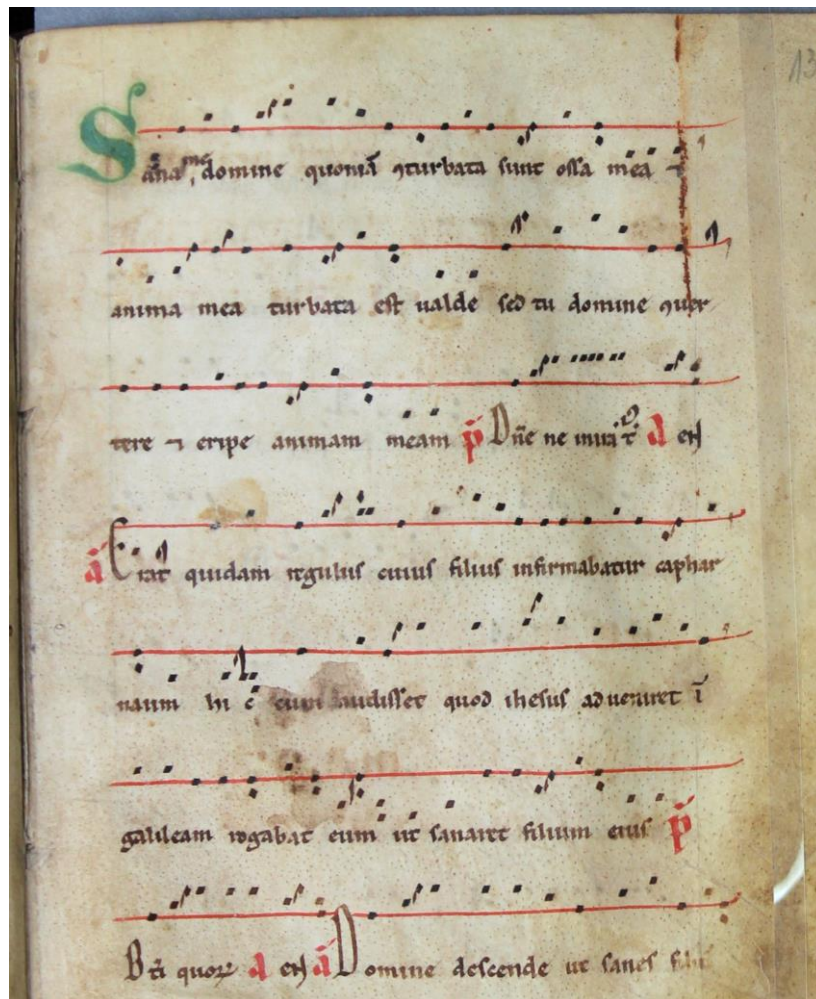 13
Sana me domine quoniā ꝯturbata sunt ossa mea ⁊
anima mea turbata est ualde sed tu domine ꝯuer
tere ⁊ eripe animam meam p̄ Dn̄e ne in ira t̄ A eu
ā Erat quidam regulus cuius filius infirmabatur caphar
naum hi c̄ cum audisset quod ihesus adueniret ī
galileam rogabat eum ut sanaret filium eius p̄
Bt̄i quorꝝ A eu ā Domine descende ut sanes